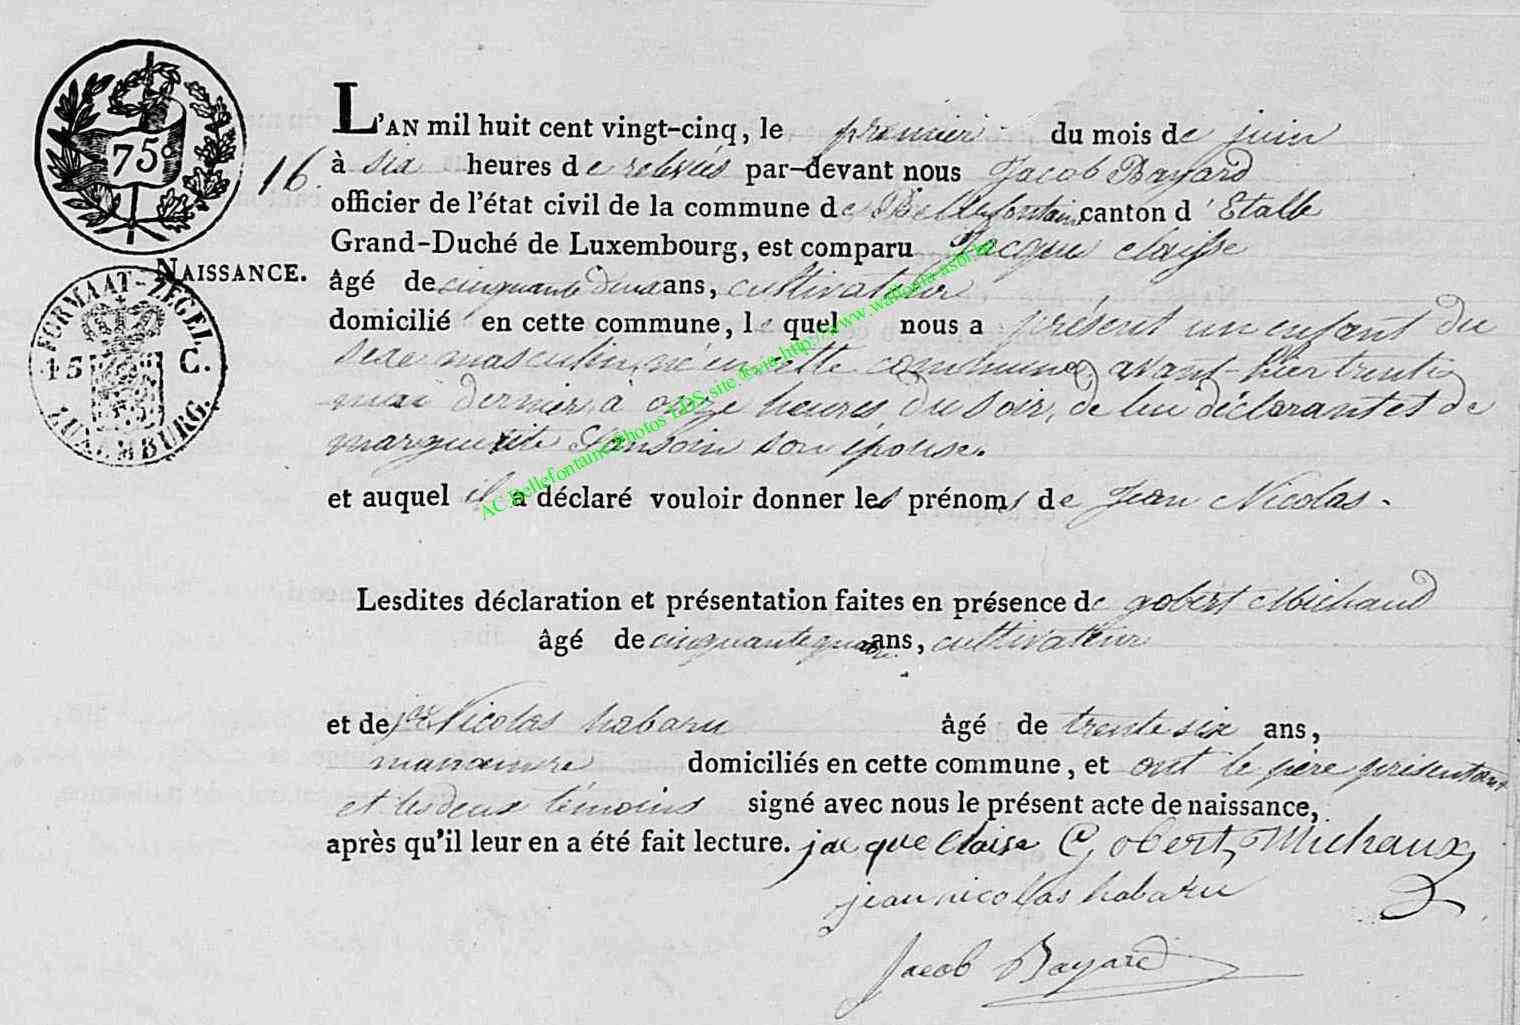 75c
16.
NAISSANCE.
FORMAAT-ZEGEL
15 C.
LUXEMBURG.
L'AN mil huit cent vingt-cinq, le premier du mois de juin
à six heures de relevés par-devant nous Jacob Bayard
officier de l'état civil de la commune de Bellefontaine, canton d'Etalle
Grand-Duché de Luxembourg, est comparu Jacque claisse
âgé de cinquante deux ans, cultivateur
domicilié en cette commune, lequel nous a présenté un enfant du
sexe masculin, né en cette commune, avant-hier trente
mai dernier, à onze heures du soir, de lui déclarant et de
marguerite son épouse.
et auquel il a déclaré vouloir donner les prénoms de Jean Nicolas.
Lesdites déclaration et présentation faites en présence de gobert Michaud
âgé de cinquante quatre ans, cultivateur
et de jean Nicolas habaru âgé de trente six ans,
manoeuvre domiciliés en cette commune, et ont le père présentant
et les deux témoins signé avec nous le présent acte de naissance,
après qu'il leur en a été fait lecture. jacque Claise Gobert Michaux
jean nicollas habaru
Jacob Bayard
AC Bellefontaine Photos LDS site Evia http://www.wallonia-asbl.be